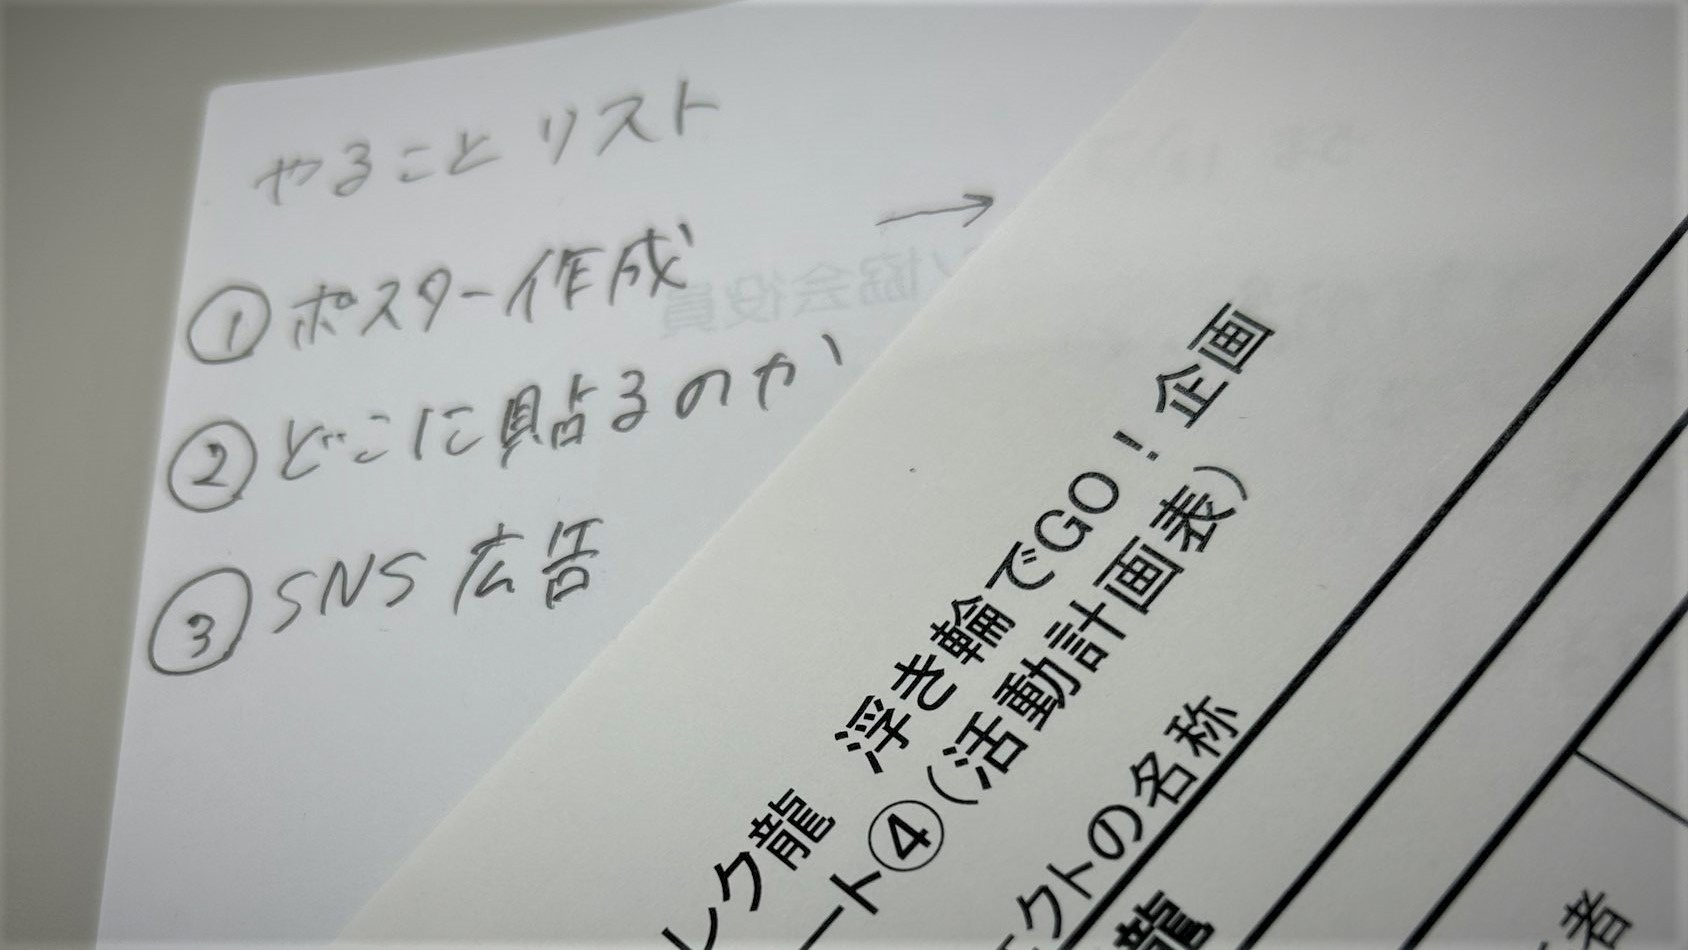 やることリスト
①ポスター作成 →
②どこに貼るのか
③SNS広告
レク龍 浮き輪でGO！企画
ート④（活動計画表）
ェクトの名称
龍
者
協会役員